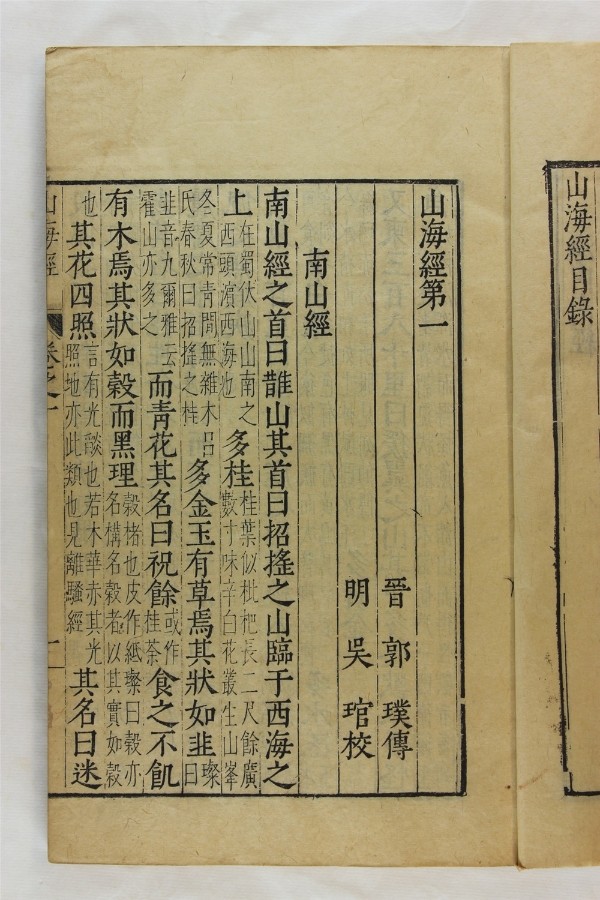 山海經目錄
山海經第一
晉郭璞傳
明吳琯校
南山經
南山經之首曰䧿山其首曰招搖之山臨于西海之
上在蜀伏山山南之西頭濱西海也多桂桂葉似枇杷長二尺餘廣數寸味辛白花叢生山峯
冬夏常青間無雜木呂氏春秋曰招搖之桂多金玉有草焉其狀如韭璨曰
韭音九爾雅云霍山亦多之而青花其名曰祝餘或作桂荼食之不飢
有木焉其狀如榖而黑理榖楮也皮作紙璨曰榖亦名構名榖者以其實如榖
也其花四照言有光燄也若木華赤其光照地亦此類也見離騷經其名曰迷
山海經 卷之一